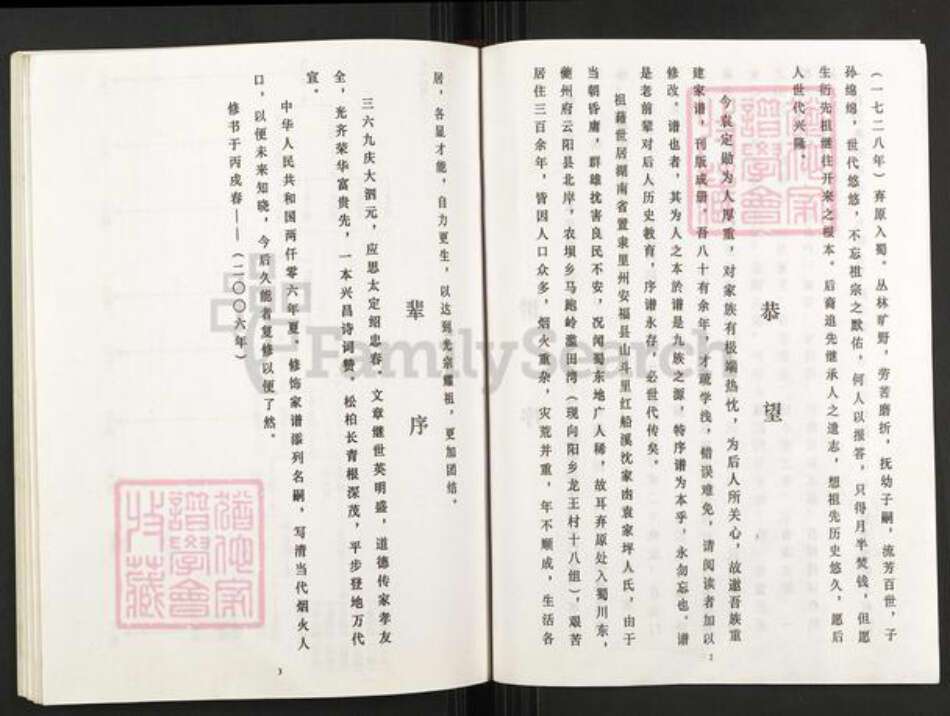 (一七二八年)弃原入蜀。丛林旷野,劳苦磨折,抚幼子嗣,流芳百世,子
孙绵绵,世代悠悠,不忘祖宗之默佑,何人以报答,只得月半焚钱,但愿
生衍先祖继往开来之根本。后裔追先继承人之遗志,想祖先历史悠久,愿后
人世代兴隆。
恭望
今袁定勋为人厚重,对家族有极端热忱,为后人所关心,故邀吾族重
建家谱,刊版成册,吾八十有余年,才疏学浅,错误难免,请阅读者加以
修改,谱也者,其为人之本於谱是九族之源,特序谱为本乎,永勿忘也。谱
是老前辈对后人历史教育,序谱永存,必世代传矣。
祖籍世居湖南省置隶里州安福县山斗里红船溪沈家卤袁家坪人氏,由于
当朝昏庸,群雄扰害良民不安,况闻蜀东地广人稀,故耳弃原处入蜀川东,
夔州府云阳县北岸,农坝乡马跑岭滥田湾(现向阳乡龙王村十八组),艰苦
居住三百余年,皆因人口众多,烟火重杂,灾荒并重,年不顺成,生活各
2
居,各显才能,自力更生,以达到光宗耀祖,更加团结。
辈序
三六九庆大泗元,应思太定绍忠春,文章继世英明盛,道德传家孝友
全,光齐荣华富贵先,一本兴昌诗词赞,松柏长青根深茂,平步登地万代
宣。
中华人民共和国两仟零六年夏,修饰家谱添列名嗣,写清当代烟火人
口,以便未来知晓,今后久能者复修以便了然。
修书于丙戌春——(二〇〇六年)
3
FamilySearch